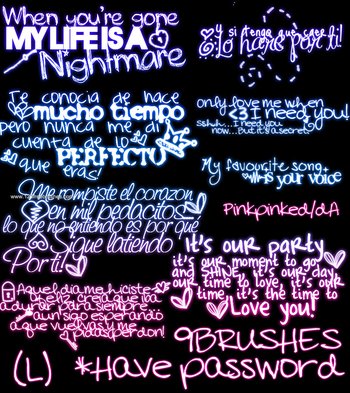 When you're gone
MY LIFE IS A
Nightmare
y si tengo que caer
Lo hare por ti!
Te conocia de hace
mucho tiempo
pero nunca me di
cuenta de lo
PERFECTO
que eras!
only love me when
I need you!
sshh... I need you
now... But it's a secret
My favourite song
is your voice
Me rompiste el corazon
en mil pedacitos
lo que no entiendo es por que
Sigue latiendo
Por ti
Pinkpinked/dA
It's our party
it's our moment to go
and SHINE, it's our day,
our time to love, it's our
time, it's the time to
Love you!
Aquel dia me hiciste
feliz, creia que iba
a durar para siempre
aun sigo esperando
a que vuelvas y me
pidas perdon!
9BRUSHES
(L) *Have password